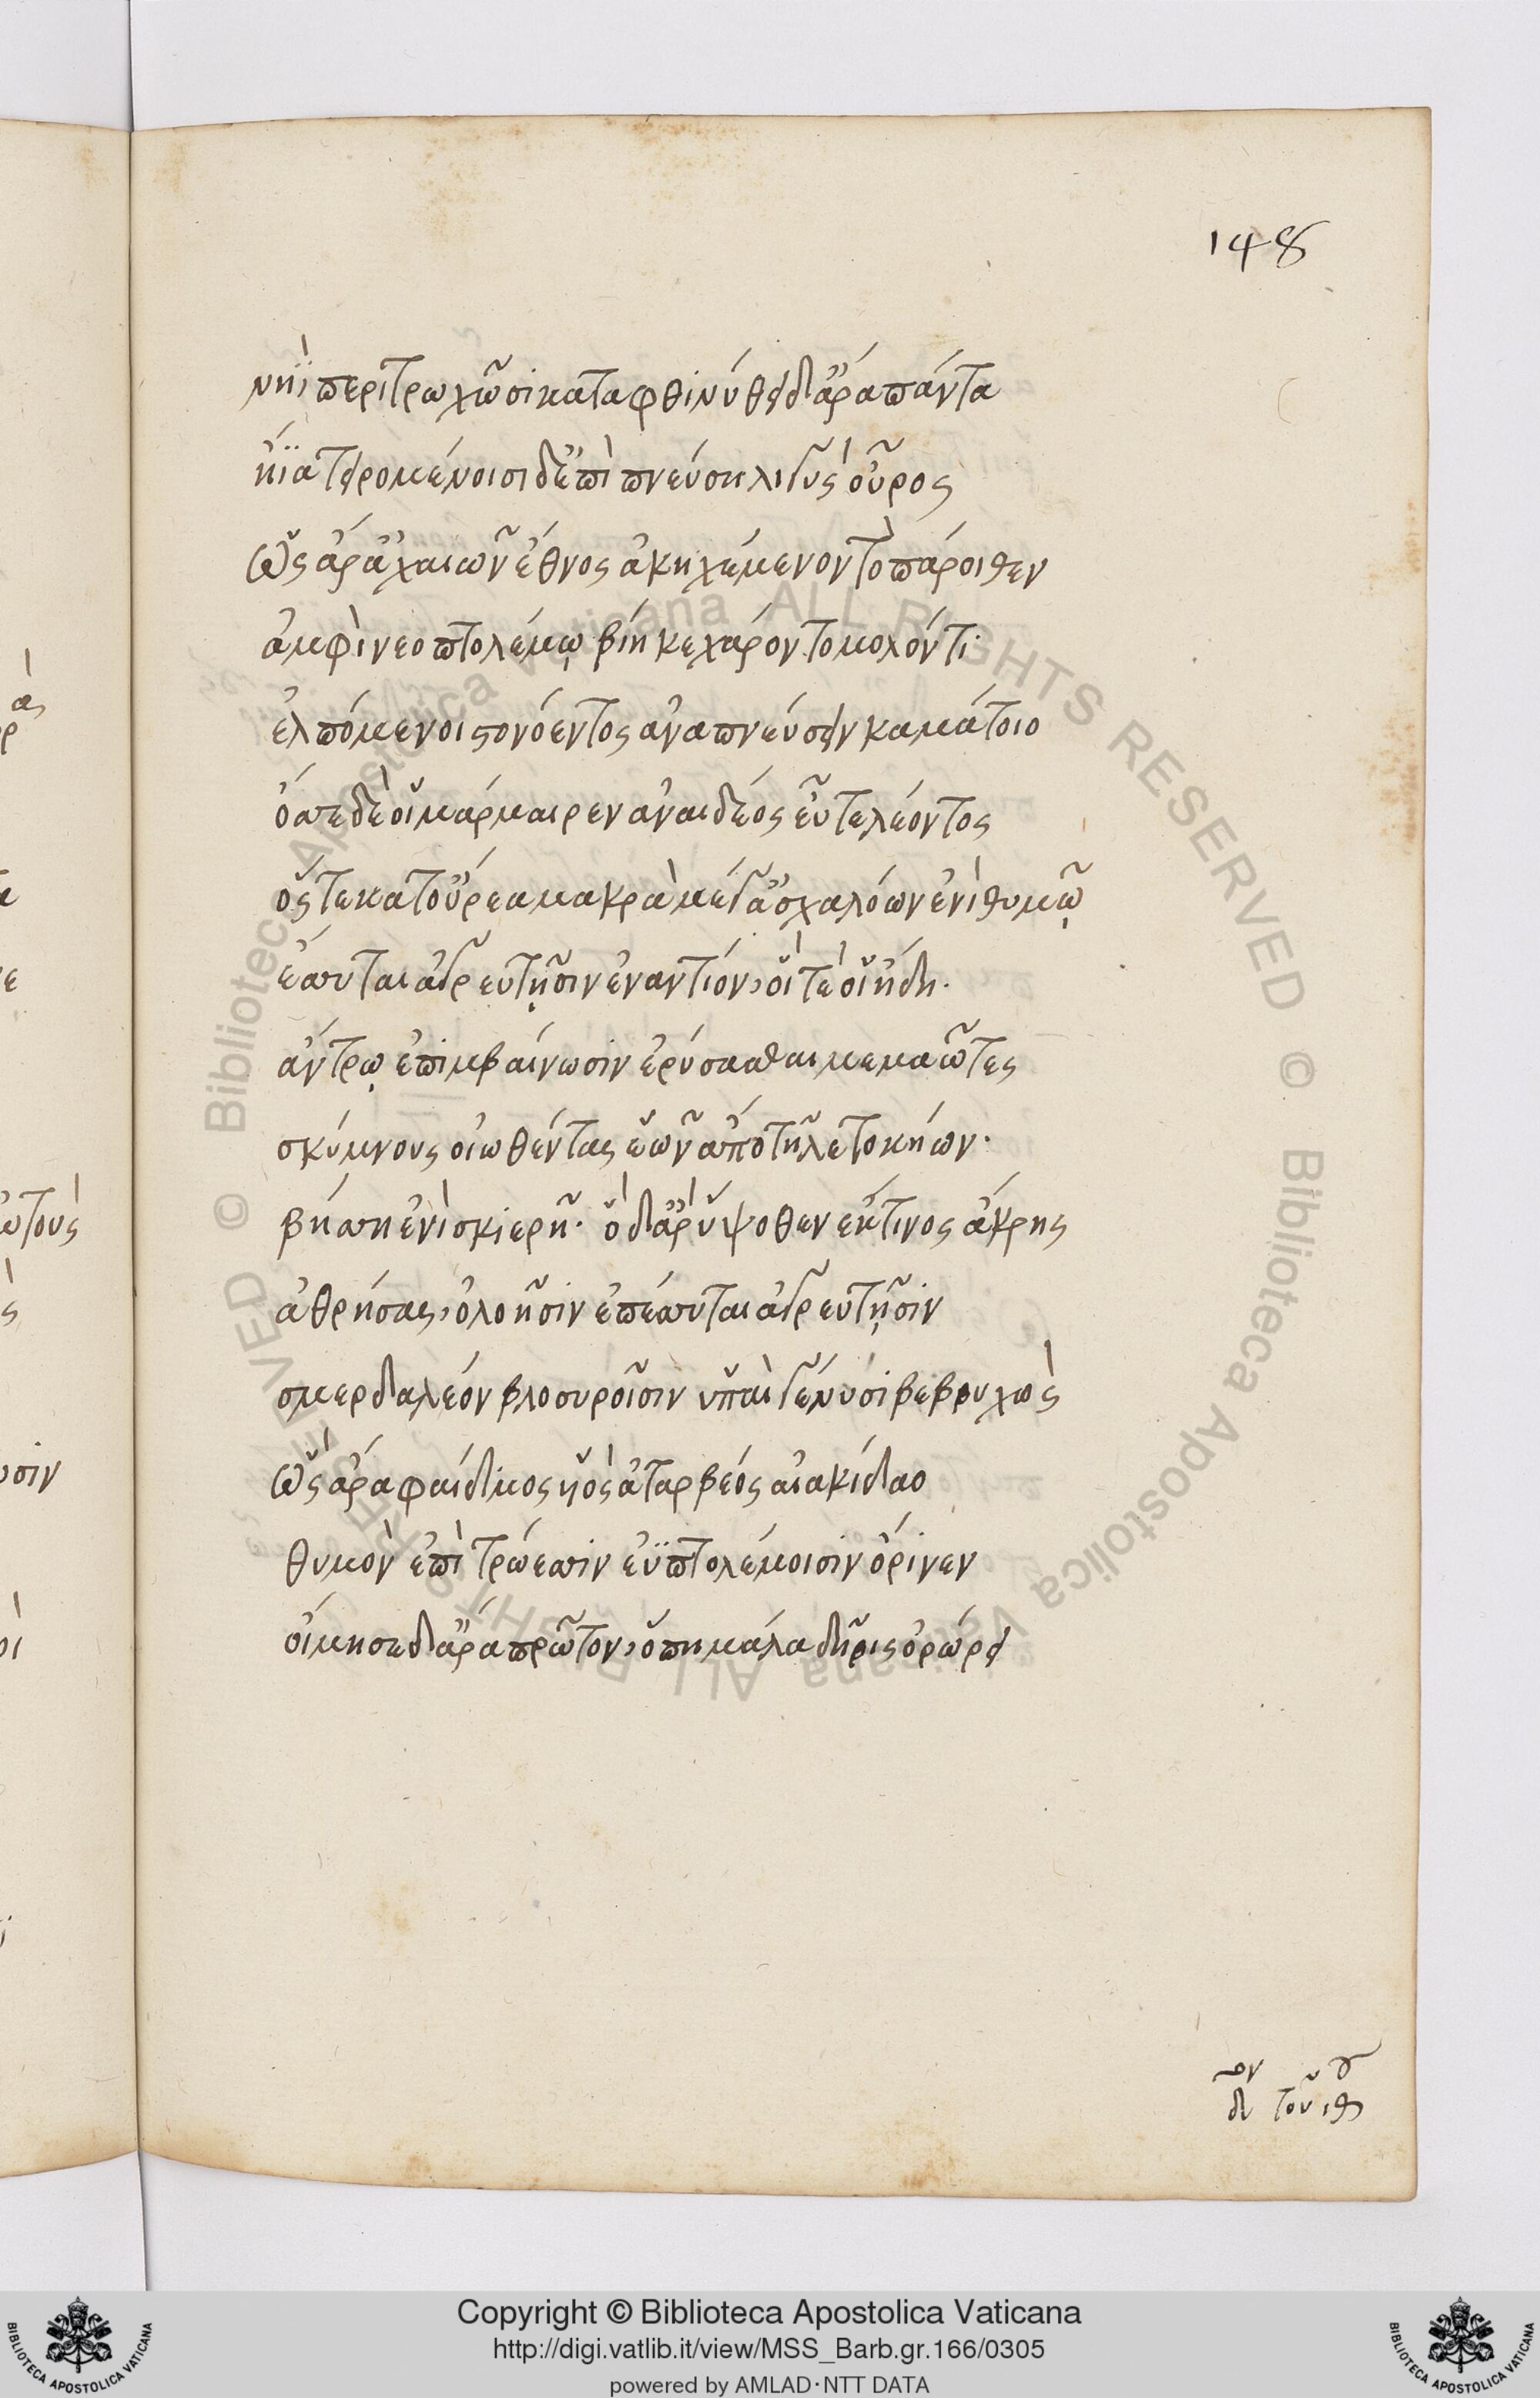 148
νηῒ περιτρωχῶσι καταφθινύθει δ' ἄρα πάντα
ἤϊα τειρομένοισι δ' ἐπιπνεύσῃ λιγὺς οὖρος
ὣς ἄρ' ἀχαιῶν ἔθνος ἀκηχέμενον τοπάροιθεν
ἀμφὶ νεοπτολέμῳ βίη κεχάροντο μολόντι
ἐλπόμενοι στονόεντος ἀναπνεύσειν καμάτοιο
ὄσσε δέ οἱ μάρμαιρεν ἀναιδέος εὖτε λέοντος
ὅς τε κατ' οὔρεα μακρὰ μέγ' ἀσχαλόων ἐνὶ θυμῷ
ἔσσυται ἀγρευτῇσιν ἐναντίον, οἵ τέ οἱ ἤδη·
ἄντρῳ ἐπιμβαίνωσιν ἐρύσασθαι μεμαῶτες
σκύμνους οἰωθέντας ἑῶν ἀπὸ τῆλε τοκήων·
βήσσῃ ἐνὶ σκιερῇ· ὁ δ' ἄρ' ὑψόθεν ἔκ τινος ἄκρης
ἀθρήσας, ὀλοῇσιν ἐπέσσυται ἀγρευτῇσιν
σμερδαλέον βλοσυροῖσιν ὑπαὶ γένυσι βεβρυχὼς
ὣς ἄρα φαίδιμος υἱὸς ἀταρβέος αἰακίδαο
θυμὸν ἐπὶ τρώεσσιν ἐϋπτολέμοισιν ὄρινεν
οἴμησε δ' ἄρα πρῶτον, ὅπη μάλα δῆρις ὀρώρει
Copyright © Biblioteca Apostolica Vaticana
http://digi.vatlib.it/view/MSS_Barb.gr.166/0305
powered by AMLAD·NTT DATA